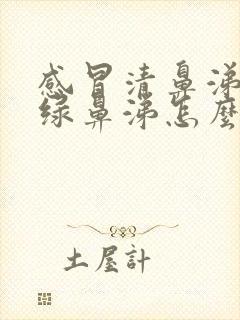 感冒清鼻涕
绿鼻涕怎麼
土屋計